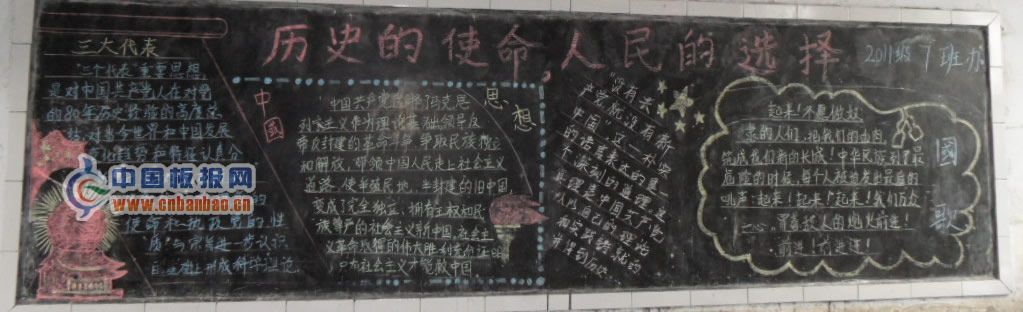 历史的使命,人民的选择
2011级7班办
三大代表
"三个代表"重要思想,
是对中国共产党人在对党
的80年历史经验的高度总
结,对当今世界和中国发展
使命和执政党的性
质与宗旨进一步认识
中国板报网
www.cnbanbao.cn
中國
思想
中国共产党选择马克思
列宁主义作为理论基础领导反
帝反封建的革命斗争,争取民族独立
和解放,带领中国人民走上社会主义
道路,使半殖民地,半封建的旧中国,
变成了完全独立、拥有主权和民
族尊严的社会主义新中国,
义革命取得的伟大胜利充份证明
只有社会主义才能救中国.
"没有共
产党就没有新
中国"这一朴实
的话语表达的是一
个深刻的道理
真理是中国共产党
人以自己的
和实践
得到
起来!不愿做奴
隶的人们,把我们的血肉,
筑成我们新的长城!中华民族到了最
危险的时候,每个人被迫发出最后的
吼声:起来!起来!起来!我们万众
一心,冒着敌人的炮火前进!
前进!前进进!
國歌